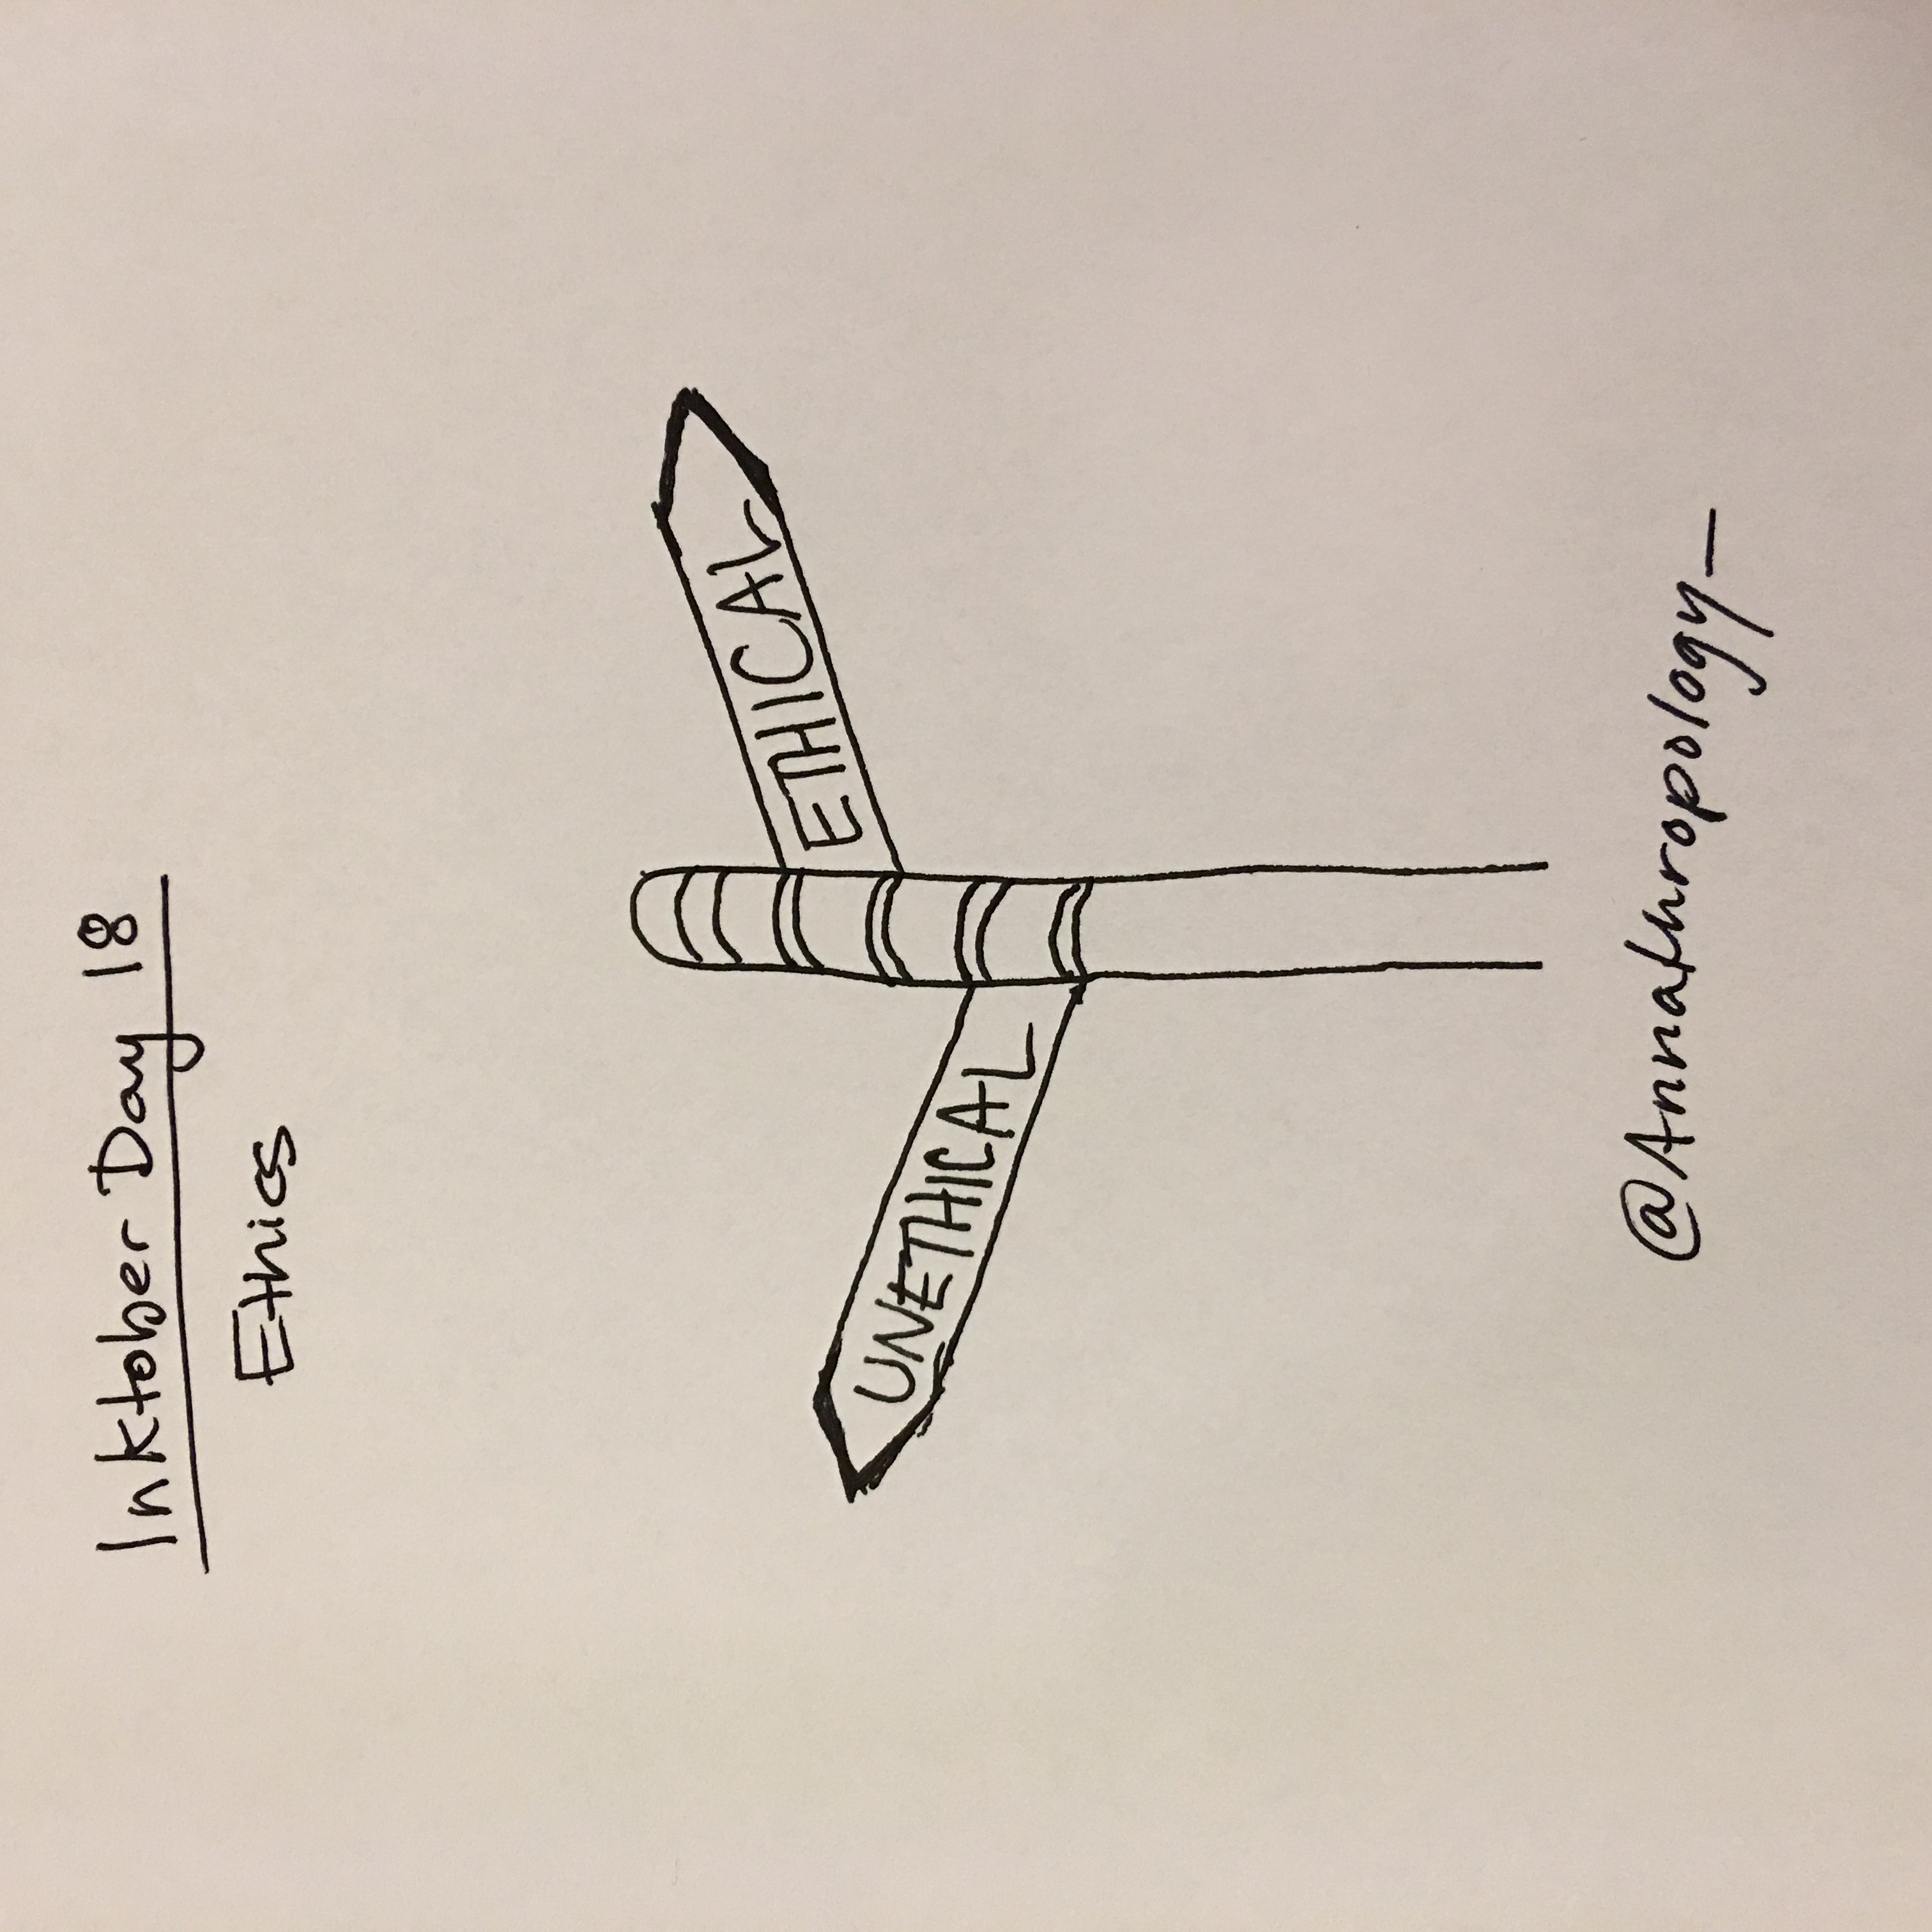 Inktober Day 18
Ethics
ETHICAL
UNETHICAL
@Annathropology_